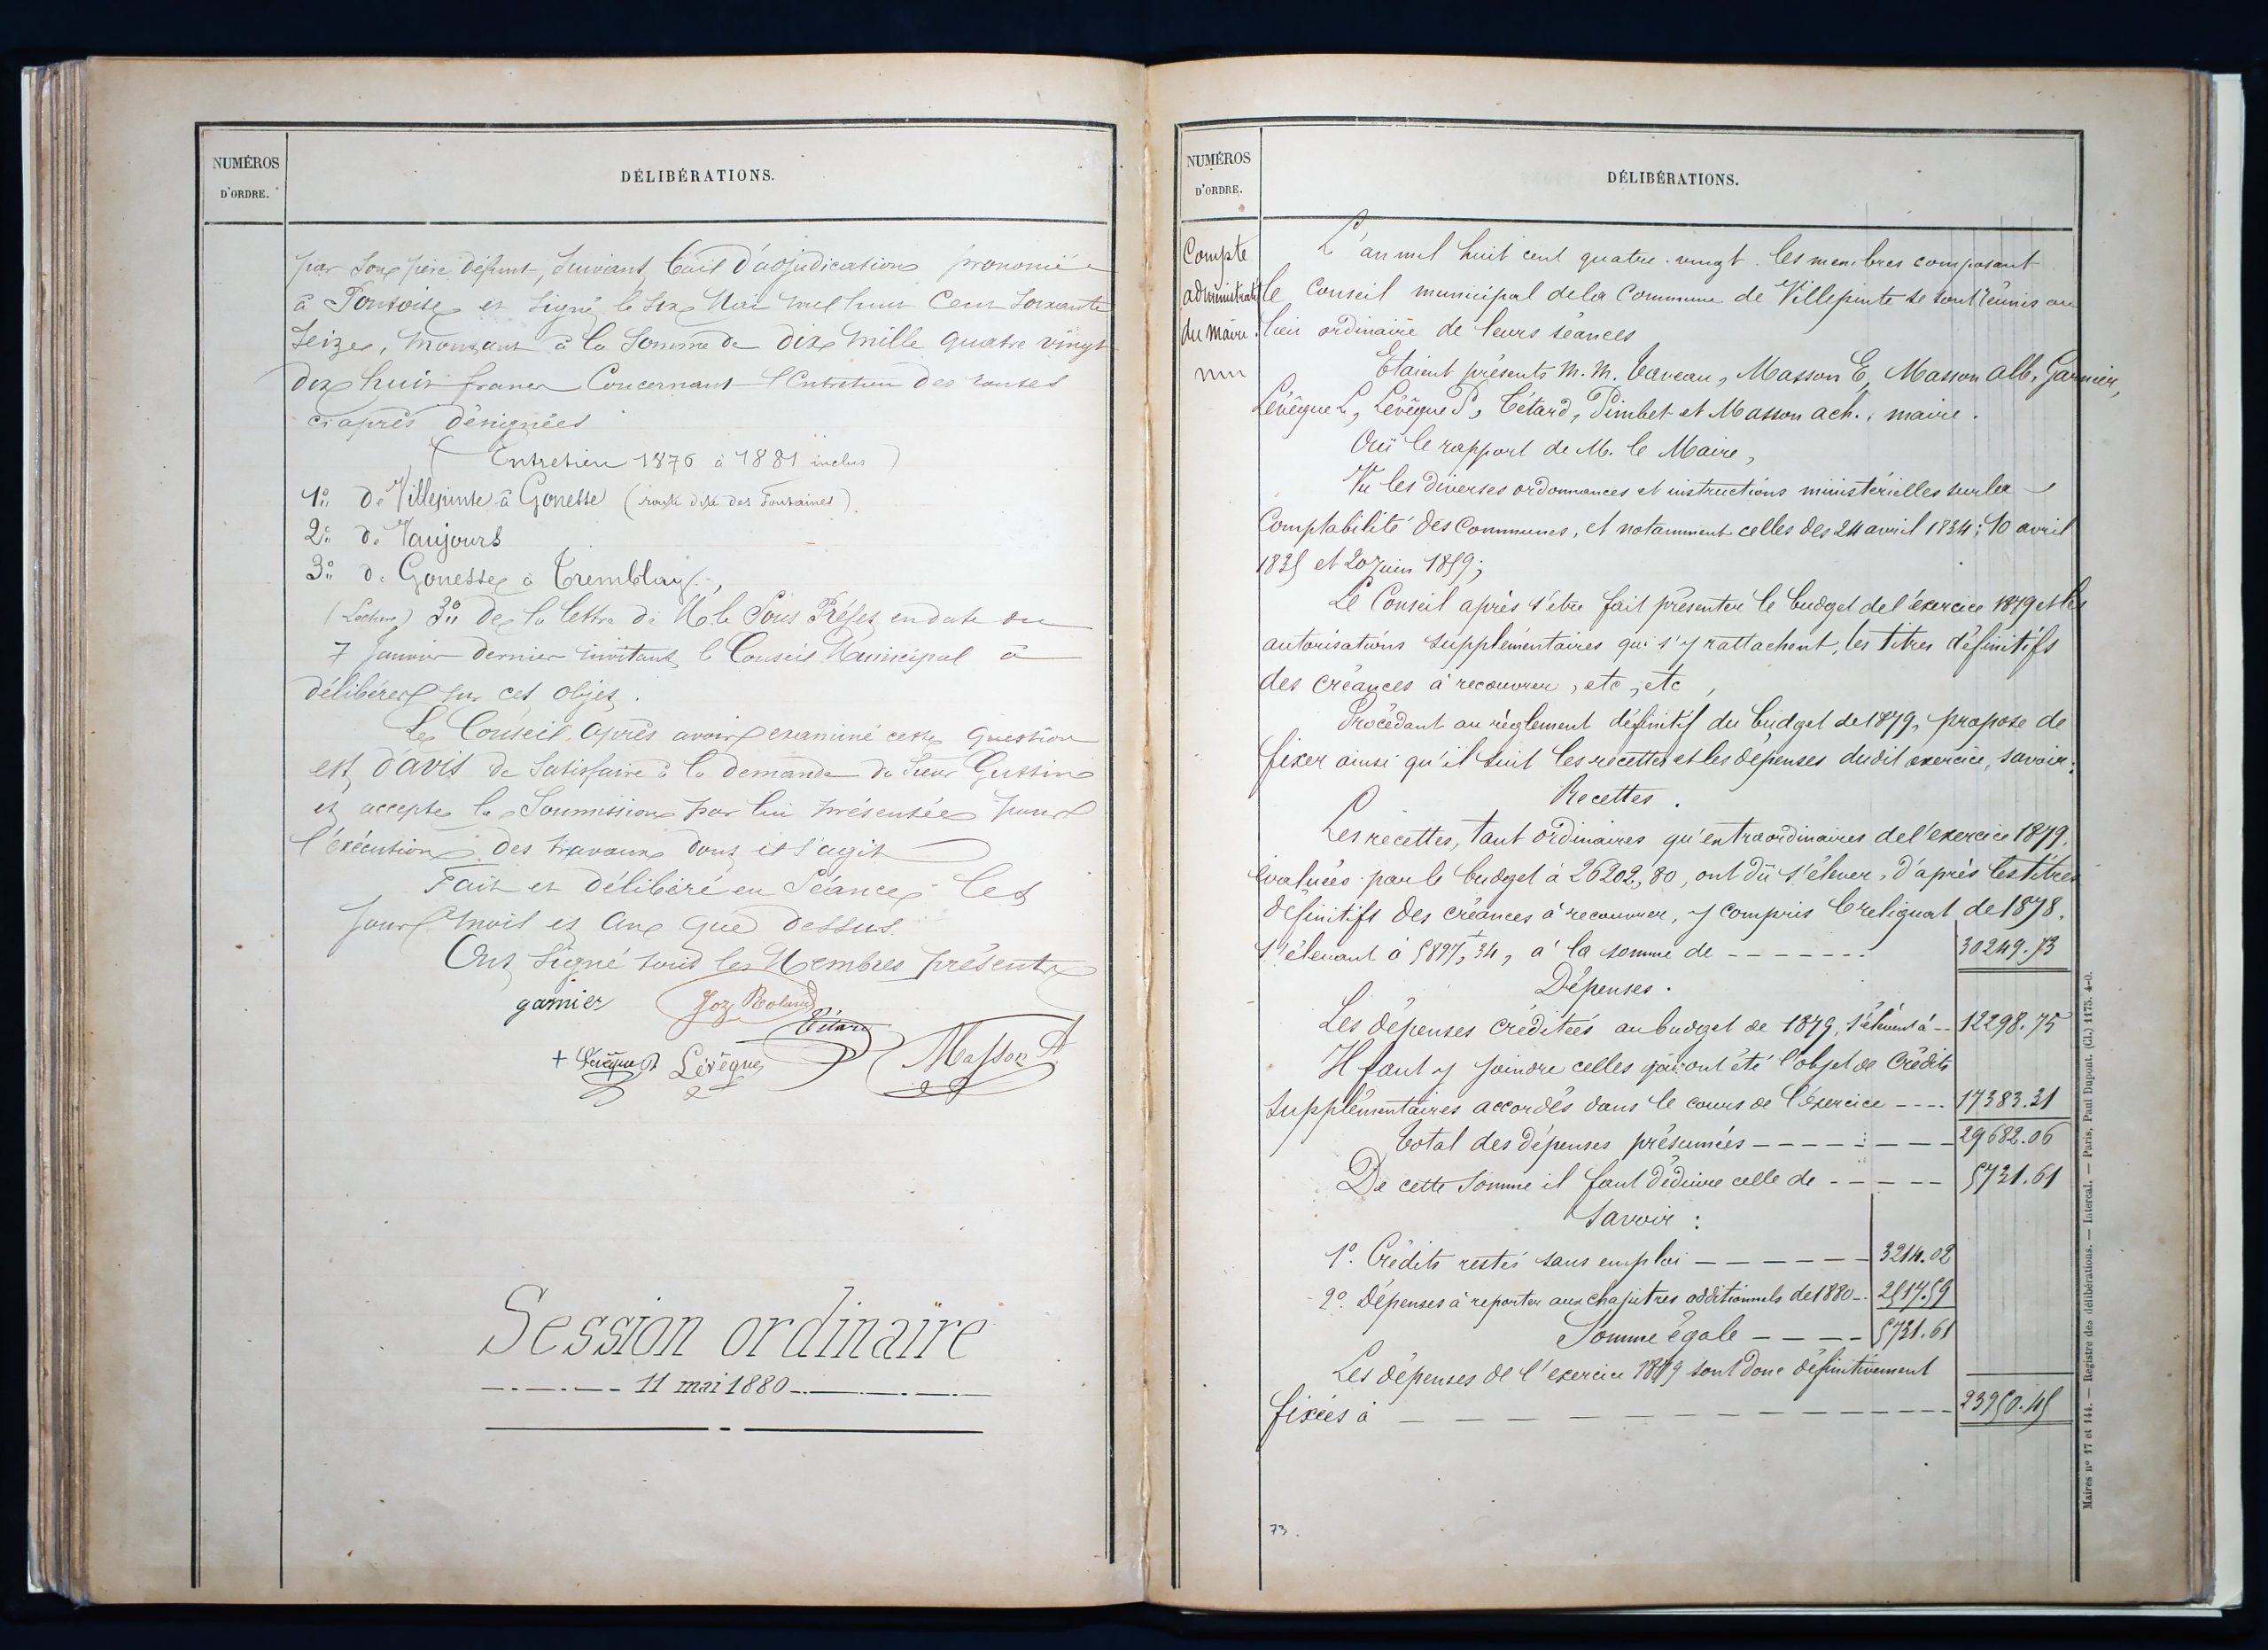 NUMÉROS
D'ORDRE.
DÉLIBÉRATIONS.
par son père défunt, suivant bail d'adjudication prononcé
à Pontoise et signé le six Mai mil huit Cent soixante
seize, montant à la somme de dix mille quatre vingt
dix huit francs Concernant l'Entretien des routes
ci après désignées
( Entretien 1876 à 1881 inclus )
1° de Villepinte à Gonesse (route dite des Fontaines).
2° de Vaujours
3° de Gonesse à Tremblay.,
(Lecture) 3° de la lettre de M. le Sous Préfet en date du
7 Janvier dernier invitant le Conseil Municipal à
délibérer sur cet objet.
Le Conseil, après avoir examiné cette question
est d'avis de satisfaire à la demande du Sieur
et accepte la Soumission par lui présentée pour
l'éxécution des travaux dont il s'agit
Fait et délibéré en Séance les
jour mois et an que dessus.
Ont signé tous les Membres présents
garnier Roland
Tétard
+ Lévêque P Lévêque Masson A
Session ordinaire
11 mai 1880
NUMÉROS
D'ORDRE.
DÉLIBÉRATIONS.
Compte
administratif
du maire.
L'an mil huit cent quatre-vingt les membres composant
le Conseil municipal de la Commune de Villepinte se sont réunis au
lieu ordinaire de leurs séances
Etaient présents M. M. Taveau, Masson E, Masson Alb, Garnier,
Lévêque L, Lévêque P, Tétard, Pimbet et Masson ach., maire.
Ouï le rapport de M. le Maire,
Vu les diverses ordonnances et instructions ministérielles sur la
Comptabilité des Communes, et notamment celles des 24 avril 1834; 10 avril
1835 et 20 Juin 1859;
Le Conseil après s'être fait présenter le budget de l'exercice 1879 et les
autorisations supplémentaires qui s'y rattachent, les titres définitifs
des créances à recouvrer, etc, etc,
Procédant au règlement définitif du budget de 1879, propose de
fixer ainsi qu'il suit les recettes et les dépenses dudit exercice, savoir:
Recettes.
Les recettes, tant ordinaires qu'extraordinaires de l'exercice 1879,
évaluées par le budget à 26202,80, ont dû s'élever, d'après les titres
définitifs des créances à recouvrer, y compris le reliquat de 1878,
s'élevant à 5897,34, à la somme de - - - - - - - 30249.73
Dépenses.
Les dépenses créditées au budget de 1879, s'élèvent à -- 12298.75
Il faut y joindre celles qui ont été l'objet de Crédits
supplémentaires accordés dans le cours de l'éxercice ---- 17383.31
Total des dépenses présumées - - - - - - - - 29682.06
De cette somme il faut déduire celle de - - - - - 5731.61
Savoir :
1°. Crédits restés sans emploi - - - - - - 3214.02
2°. Dépenses à reporter aux chapitres additionnels de 1880 -- 2517.59
Somme égale - - - - 5731.61
Les dépenses de l'exercice 1879 sont donc définitivement
fixées à - - - - - - - - - - 23950.45
73.
Maires nos 17 et 144. — Registre des délibérations. — Intercal. — Paris, Paul Dupont. (Cl.) 1175. 4-0.